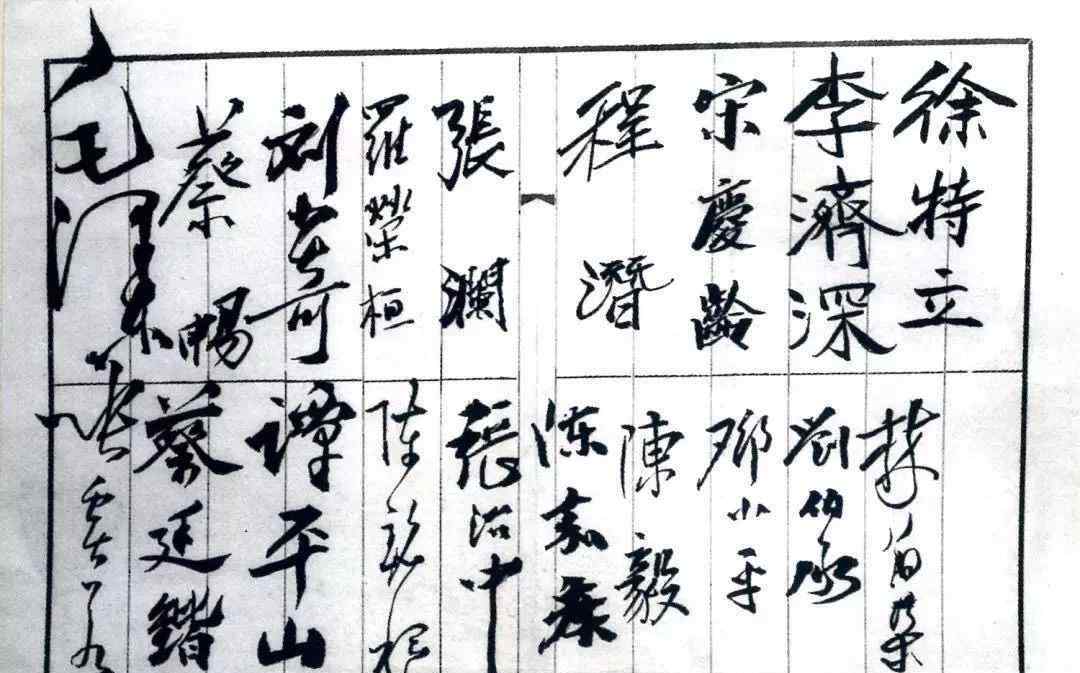 徐特立
李濟深
宋慶齡
程潛
張瀾
羅榮桓
刘少奇
蔡暢
毛澤东
林伯渠
劉伯承
邓小平
陳毅
陈嘉庚
張治中
陈
譚平山
蔡廷鍇
張